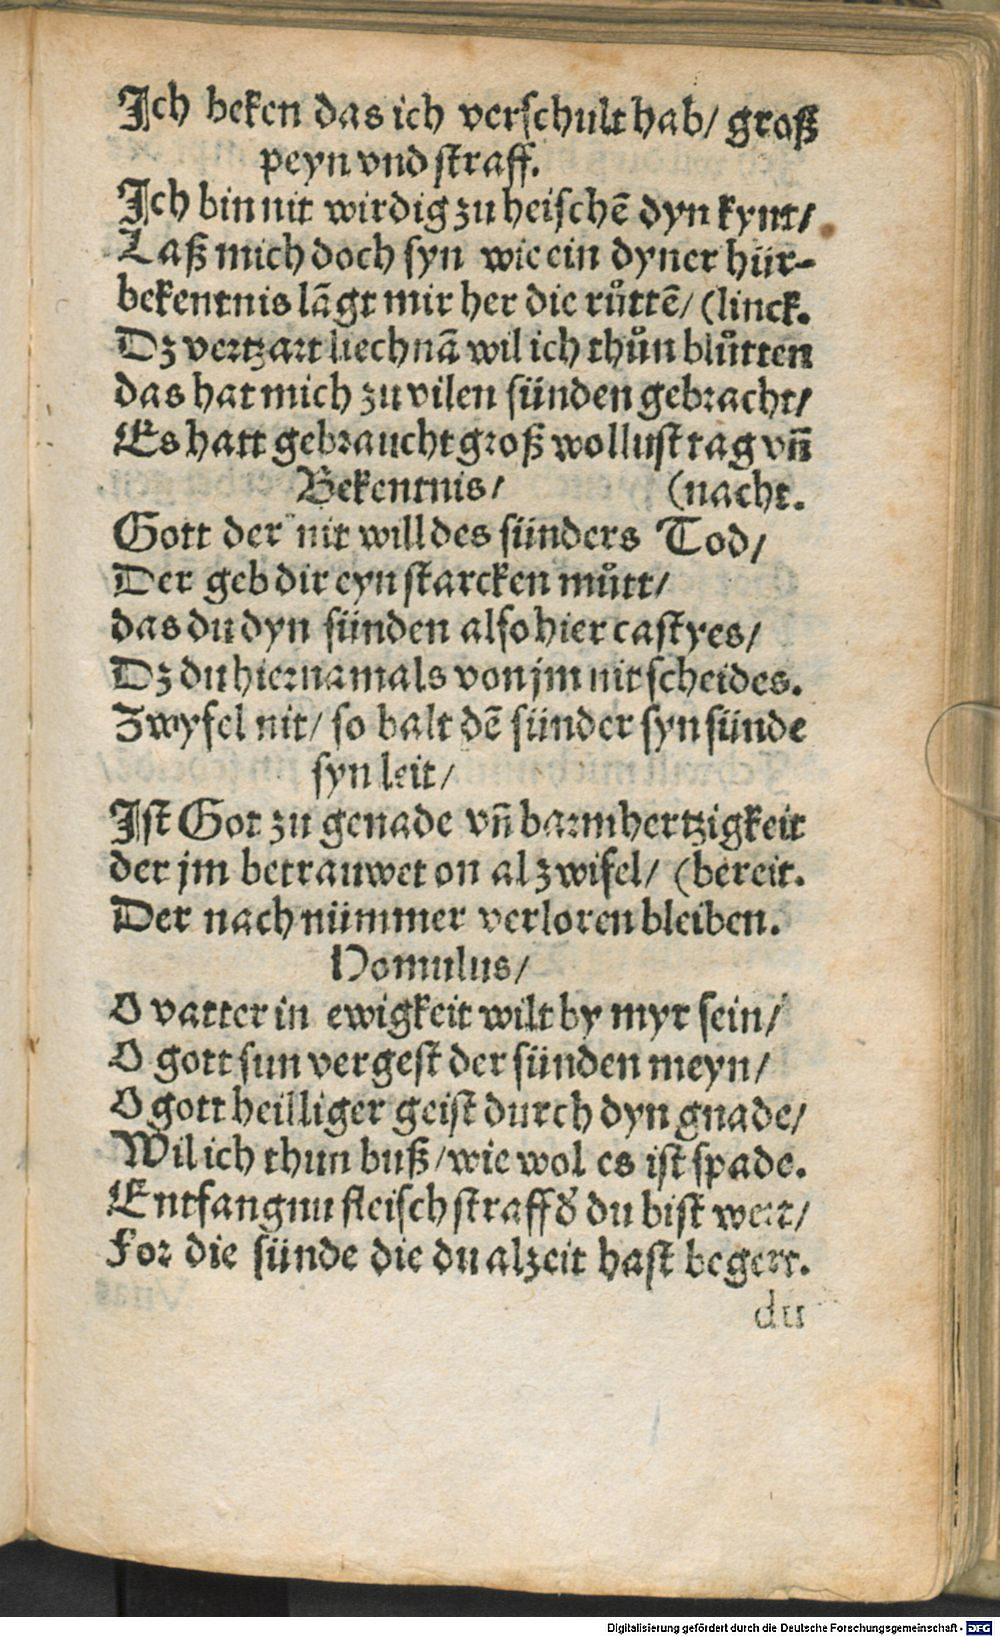 Ich beken das ich verschult hab/ groß
peyn vnd straff.
Ich bin nit wirdig zu heischē dyn kynt/
Laß mich doch syn wie ein dyner hür-
bekentnis lāgt mir her die růttē/ (linck.
Dz vertzart liechnā wil ich thůn blůtten
das hat mich zu vilen sünden gebracht/
Es hatt gebraucht groß wollust tag vñ
Bekentnis/ (nacht.
Gott der nit will des sünders Tod/
Der geb dir eyn starcken můtt/
das du dyn sünden also hier castyes/
Dz du hiernamals von jm nit scheides.
Zwyfel nit/ so balt dē sünder syn sünde
syn leit/
Ist Got zu genade vñ barmhertzigkeit
der jm betrauwet on al zwifel/ (bereit.
Der nach nümmer verloren bleiben.
Homulus/
O vatter in ewigkeit wilt by myr sein/
O gott sun vergest der sünden meyn/
O gott heilliger geist durch dyn gnade/
Wil ich thun buß/ wie wol es ist spade.
Entfang nu fleisch straff d̓ du bist wert/
For die sünde die du alzeit hast begert.
du
Digitalisierung gefördert durch die Deutsche Forschungsgemeinschaft - DFG